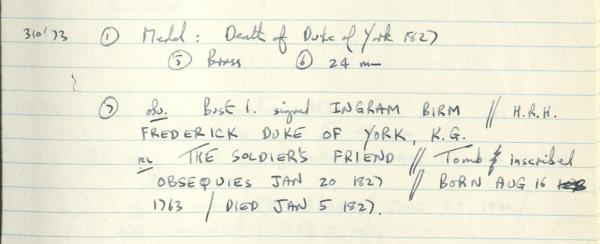 310'73 ① Medal: Death of Duke of York 1827
⑤ Brass ⑥ 24 mm
⑦ obv. Bust l. signed INGRAM BIRM // H.R.H.
FREDERICK DUKE OF YORK, K.G.
THE SOLDIER'S FRIEND // Tomb inscribed
OBSEQUIES JAN 20 1827 // BORN AUG 16
1763 / DIED JAN 5 1827.